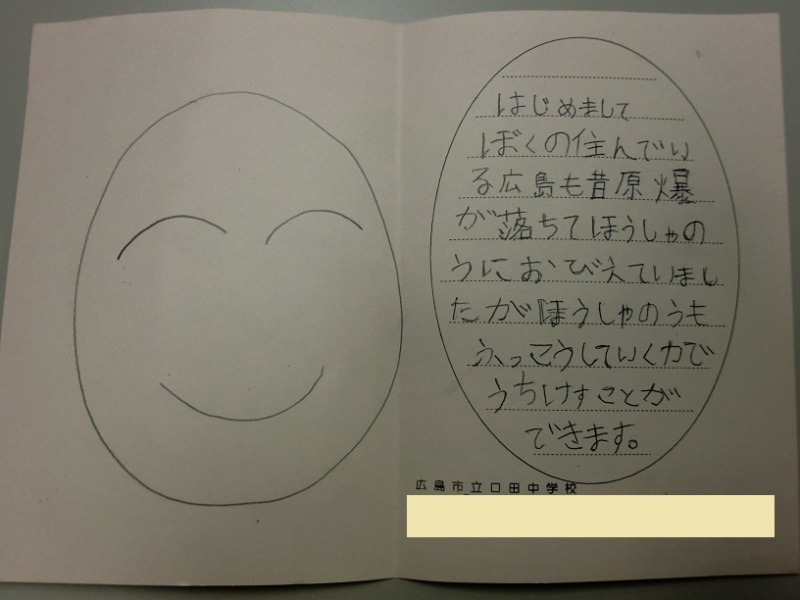 はじめまして
ぼくの住んでい
る広島も昔原爆
が落ちてほうしゃの
うにおびえていまし
たがほうしゃのうも
ふっこうしていく力で
うちけすことが
できます。
広島市立口田中学校